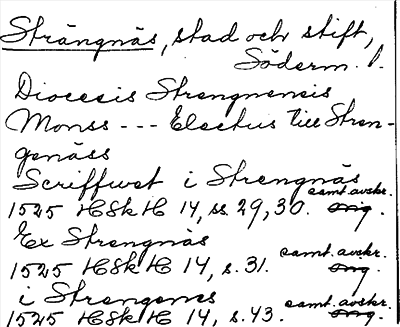 Strängnäs, stad och stift,
Söderm. l.
Diocesis Strengnensis
Monss --- Electus till Stren-
genäss
Scriffwet i Strengnäs
samt. avskr.
1525 HSkH 14, ss. 29, 30. orig.
Ex Strengnäs
samt. avskr.
1525 HSkH 14, s. 31. orig.
i Strengenes
samt. avskr.
1525 HSkH 14, s. 43. orig.